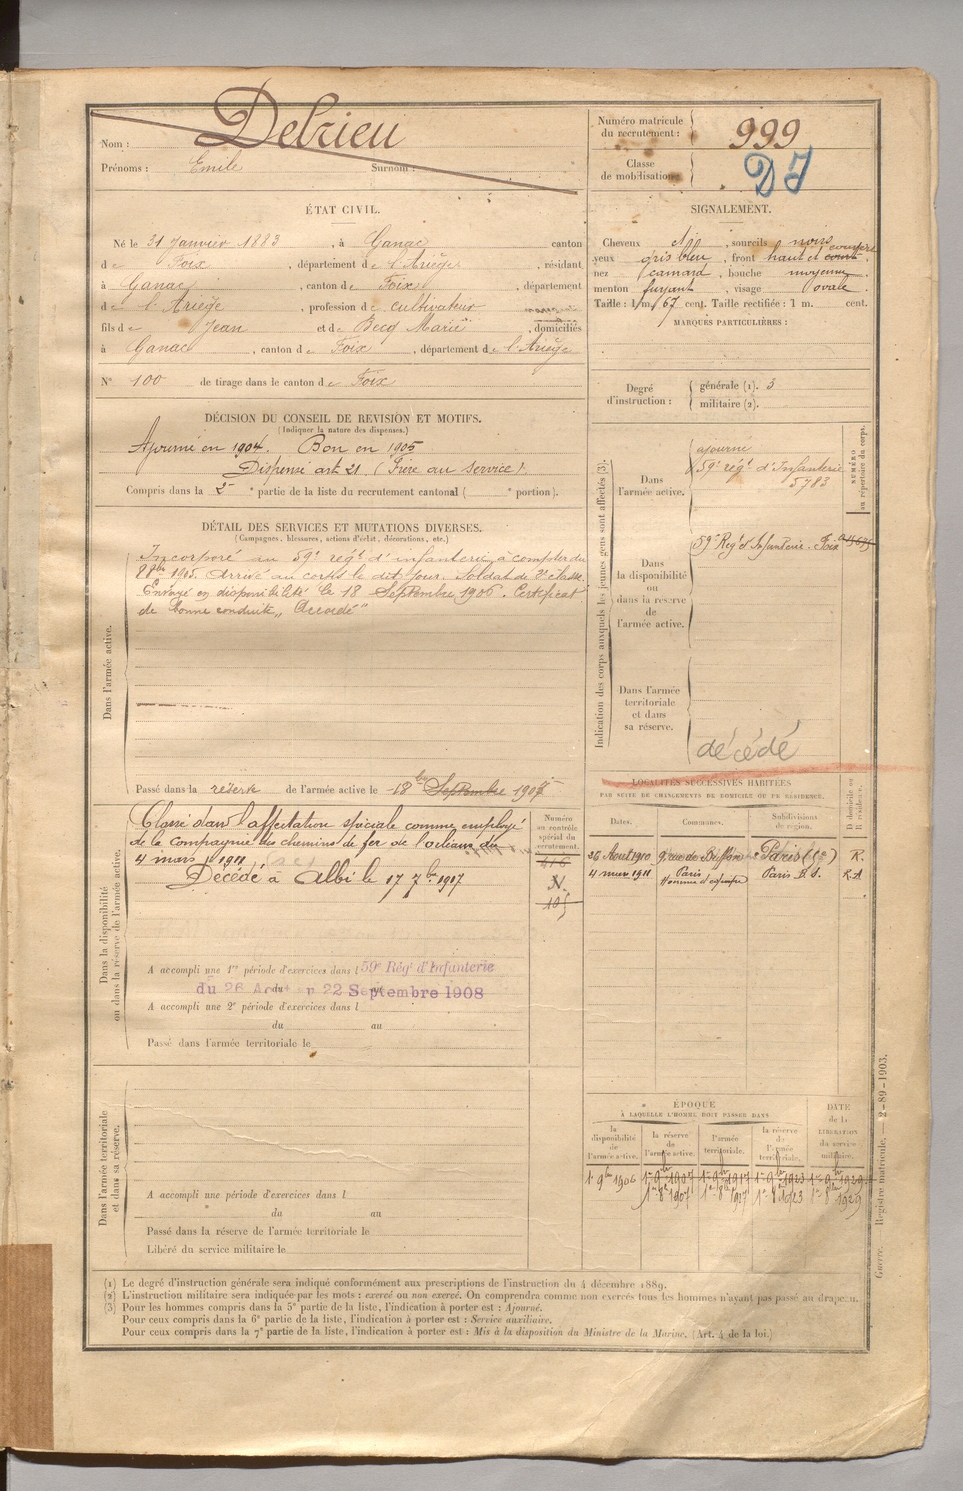 Nom : Delrieu
Prénoms : Emile Surnom :
Numéro matricule du recrutement : 999
Classe de mobilisation :
ÉTAT CIVIL.
Né le 31 Janvier 1883, à Ganac canton
de Foix, département de l'Ariège, résidant
à Ganac, canton de Foix, département
de l'Ariège, profession de cultivateur
fils de Jean et de Becq Marie, domiciliés
à Ganac, canton de Foix, département de l'Ariège
N° 100 de tirage dans le canton de Foix
SIGNALEMENT.
Cheveux , sourcils noirs
yeux gris bleu, front haut et couvert
nez camard, bouche moyenne
menton fuyant, visage ovale
Taille : 1 m. 67 cent. Taille rectifiée : 1 m. cent.
MARQUES PARTICULIÈRES :
Degré d'instruction : générale (1). 3
militaire (2).
DÉCISION DU CONSEIL DE REVISION ET MOTIFS.
(Indiquer la nature des dispenses.)
Ajourné en 1904. Bon en 1905
Dispensé art 21 (Frère au service)
Compris dans la 2e partie de la liste du recrutement cantonal ( e portion).
DÉTAIL DES SERVICES ET MUTATIONS DIVERSES.
(Campagnes, blessures, actions d'éclat, décorations, etc.)
Dans l'armée active.
Incorporé au 59e régt d'infanterie à compter du
8 8bre 1905. Arrivé au corps le dit jour. Soldat de 2e classe.
Envoyé en disponibilité le 18 Septembre 1906. Certificat
de bonne conduite „ Accordé "
Passé dans la réserve de l'armée active le
Indication des corps auxquels les jeunes gens sont affectés (3).
NUMÉRO au répertoire du corps.
Dans l'armée active.
ajourné
59e régt d'Infanterie
5783
Dans la disponibilité ou dans la réserve de l'armée active.
59e Régt d'Infanterie. Foix
Dans l'armée territoriale et dans sa réserve.
décédé
Dans la disponibilité ou dans la réserve de l'armée active.
Classé dans l'affectation spéciale comme employé
de la compagnie des chemins de fer de l'orléans du
4 mars 1911
Décédé à Albi le 17 7bre 1917
Numéro au contrôle spécial du recrutement.
416
N.
105
A accompli une 1re période d'exercices dans l 59e Régt d'Infanterie
du 26 Août au 22 Septembre 1908
A accompli une 2e période d'exercices dans l
du au
Passé dans l'armée territoriale le
LOCALITÉS SUCCESSIVES HABITÉES
PAR SUITE DE CHANGEMENTS DE DOMICILE OU DE RÉSIDENCE.
Dates. Communes. Subdivisions de région. D domicile ou R résidence.
26 Août 1910 9 rue de Buffon Paris R.
4 mars 1911 Paris Homme d'équipe Paris R.A
Dans l'armée territoriale et dans sa réserve.
A accompli une période d'exercices dans l
du au
Passé dans la réserve de l'armée territoriale le
Libéré du service militaire le
ÉPOQUE
À LAQUELLE L'HOMME DOIT PASSER DANS
la disponibilité de l'armée active. la réserve de l'armée active. l'armée territoriale. la réserve de l'armée territoriale. DATE de la LIBÉRATION du service militaire.
1er 9bre 1906 1er 9bre 1907 1er 9bre 1917 1er 9bre 1923 1er 9bre 1929
1er 8bre 1907 1er 8bre 1917 1er 8bre 1923 1er 8bre 1929
Guerre. Registre matricule. — 2-89-1903.
(1) Le degré d'instruction générale sera indiqué conformément aux prescriptions de l'instruction du 4 décembre 1889.
(2) L'instruction militaire sera indiquée par les mots : exercé ou non exercé. On comprendra comme non exercés tous les hommes n'ayant pas passé au drapeau.
(3) Pour les hommes compris dans la 5e partie de la liste, l'indication à porter est : Ajourné.
Pour ceux compris dans la 6e partie de la liste, l'indication à porter est : Service auxiliaire.
Pour ceux compris dans la 7e partie de la liste, l'indication à porter est : Mis à la disposition du Ministre de la Marine. (Art. 4 de la loi.)